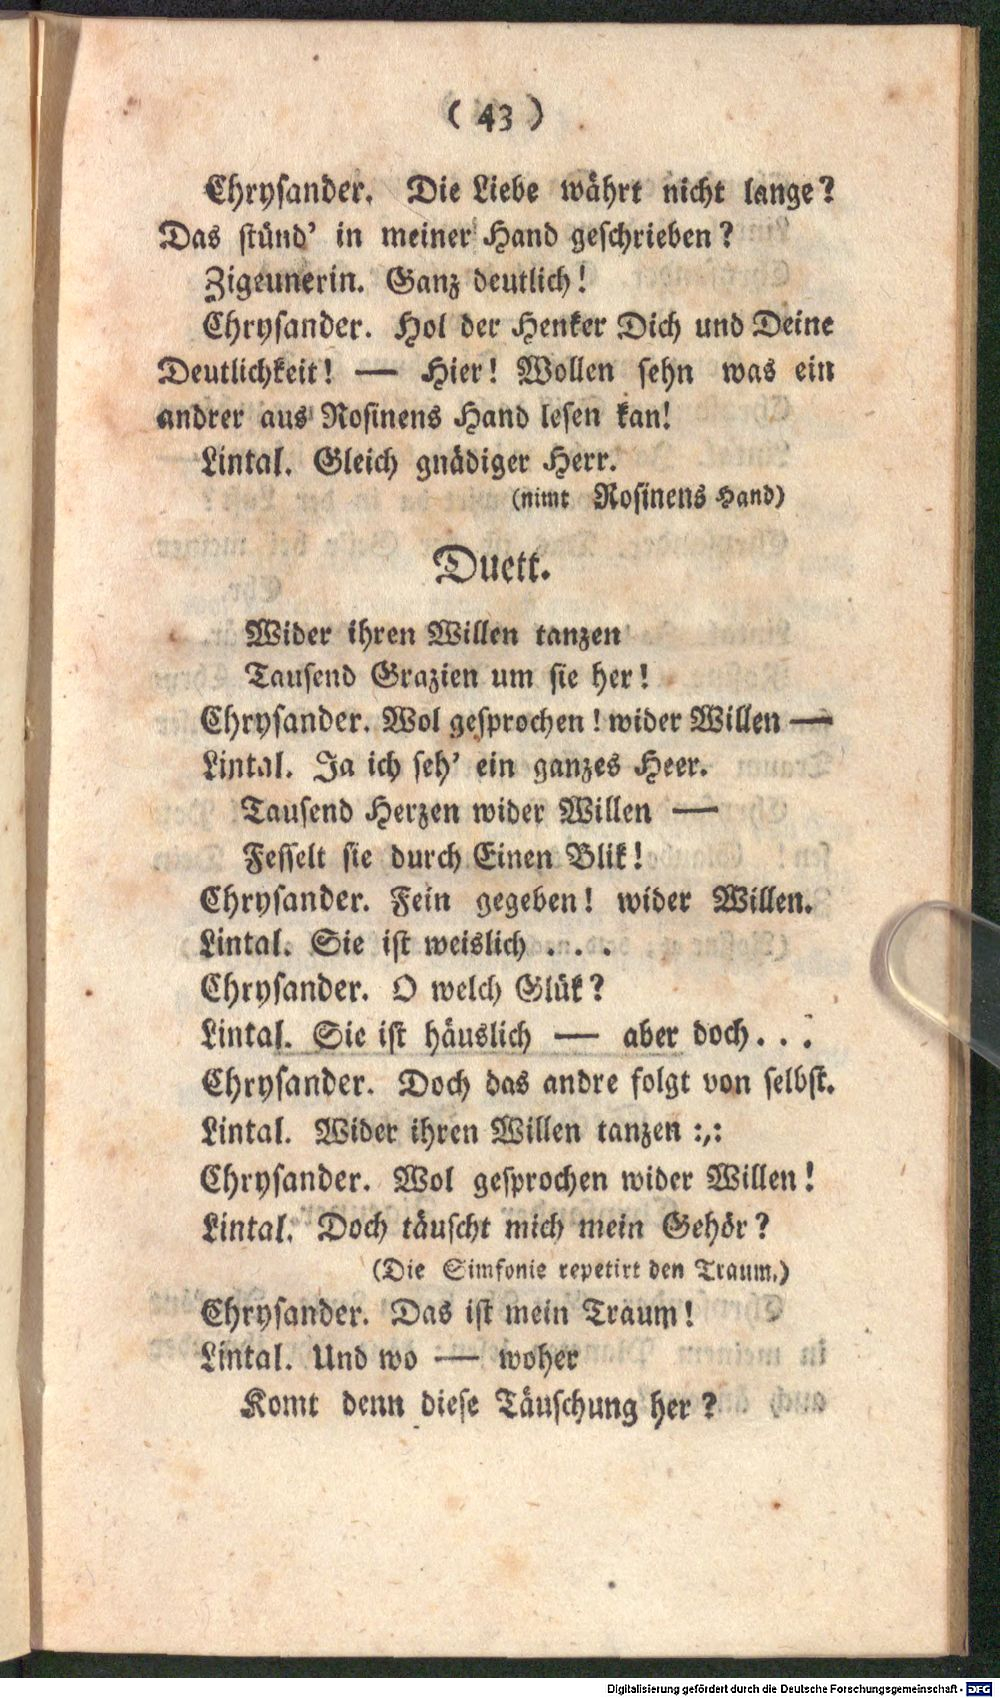 ( 43 )
Chrysander. Die Liebe währt nicht lange?
Das stünd' in meiner Hand geschrieben?
Zigeunerin. Ganz deutlich!
Chrysander. Hol der Henker Dich und Deine
Deutlichkeit! — Hier! Wollen sehn was ein
andrer aus Rosinens Hand lesen kan!
Lintal. Gleich gnädiger Herr.
(nimt Rosinens Hand)
Duett.
Wider ihren Willen tanzen
Tausend Grazien um sie her!
Chrysander. Wol gesprochen! wider Willen —
Lintal. Ja ich seh' ein ganzes Heer.
Tausend Herzen wider Willen —
Fesselt sie durch Einen Blik!
Chrysander. Fein gegeben! wider Willen.
Lintal. Sie ist weislich . . .
Chrysander. O welch Glük?
Lintal. Sie ist häuslich — aber doch. . .
Chrysander. Doch das andre folgt von selbst.
Lintal. Wider ihren Willen tanzen :,:
Chrysander. Wol gesprochen wider Willen!
Lintal. Doch täuscht mich mein Gehör?
(Die Simfonie repetirt den Traum.)
Chrysander. Das ist mein Traum!
Lintal. Und wo — woher
Komt denn diese Täuschung her?
Digitalisierung gefördert durch die Deutsche Forschungsgemeinschaft - DFG